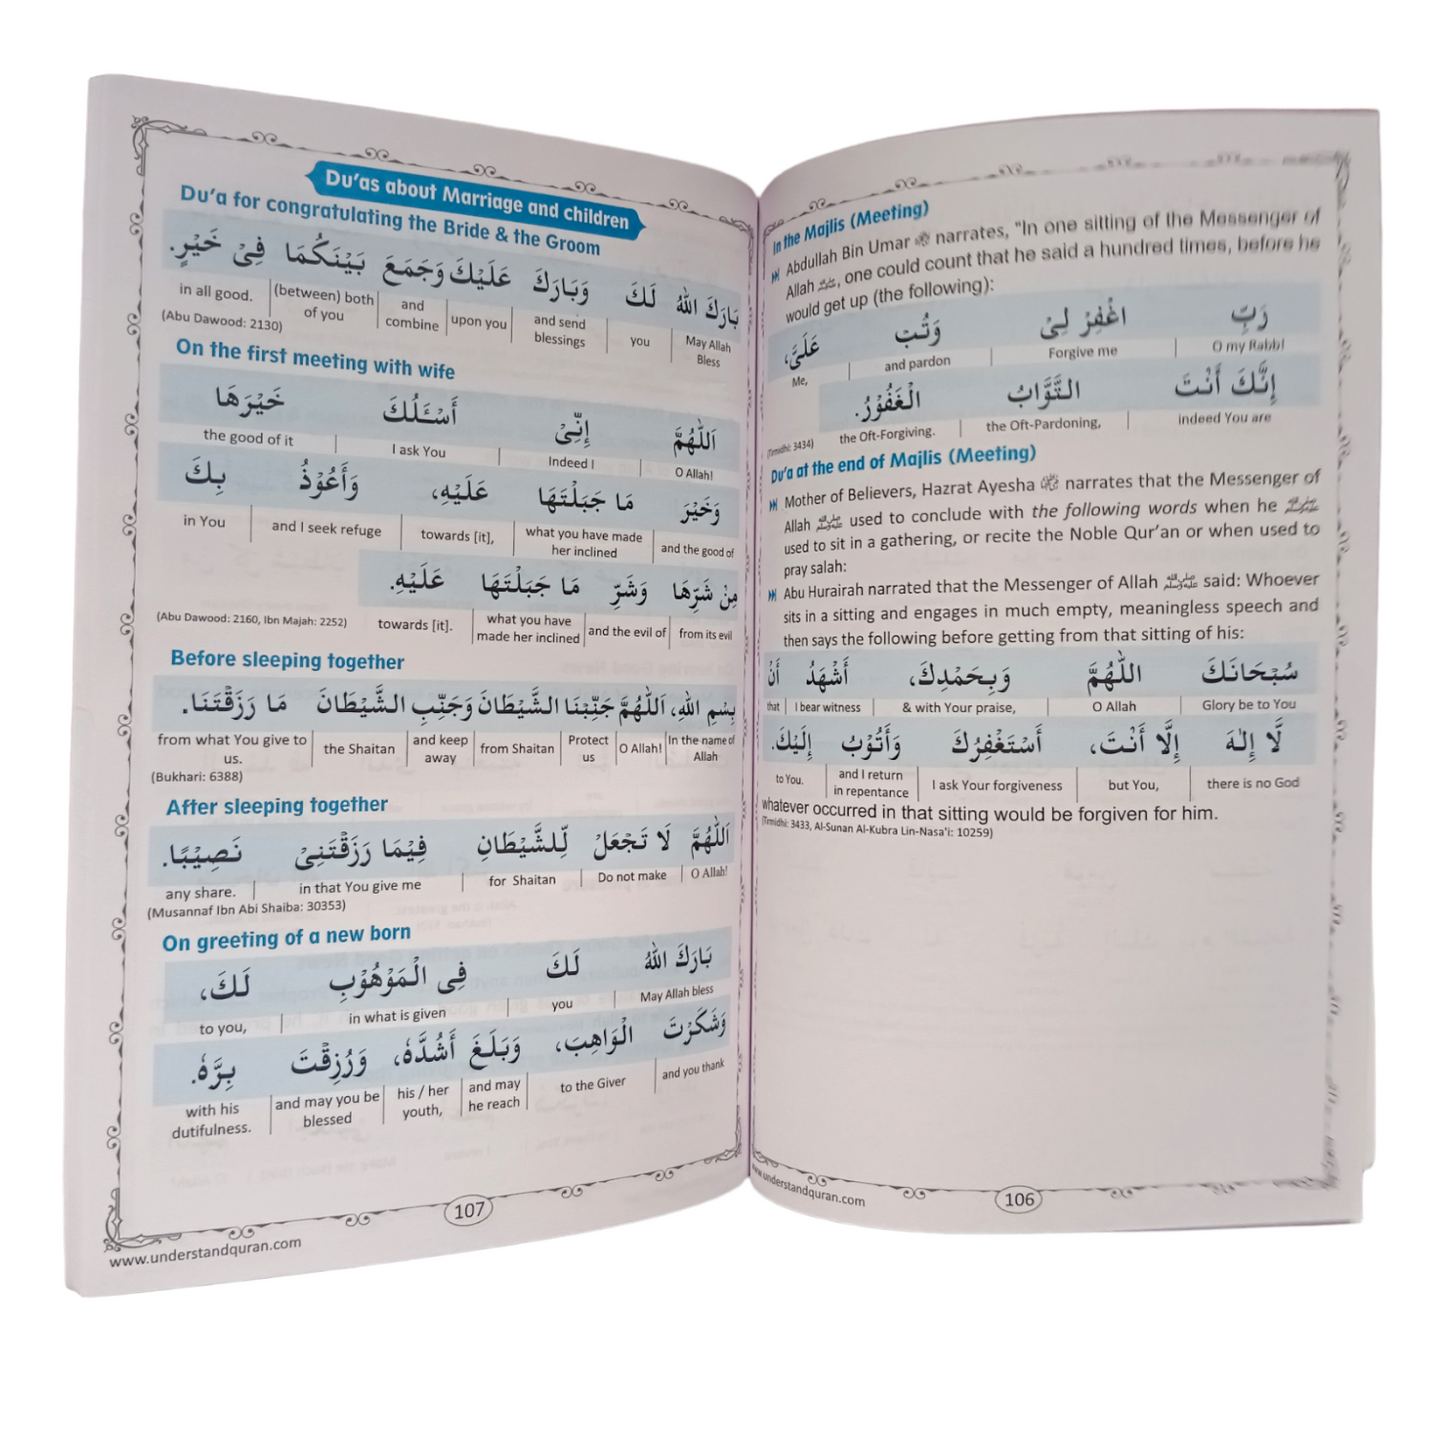 In the Majlis (Meeting)
Abdullah Bin Umar ؓ narrates, "In one sitting of the Messenger of
Allah ﷺ, one could count that he said a hundred times, before he
would get up (the following):
رَبِّ اغْفِرْ لِىْ وَتُبْ عَلَىَّ،
O my Rabb! | Forgive me | and pardon | Me,
إِنَّكَ أَنْتَ التَّوَّابُ الْغَفُوْرُ.
indeed You are | the Oft-Pardoning, | the Oft-Forgiving.
(Tirmidhi: 3434)
Du'a at the end of Majlis (Meeting)
Mother of Believers, Hazrat Ayesha ؓ narrates that the Messenger of
Allah ﷺ used to conclude with the following words when he ﷺ
used to sit in a gathering, or recite the Noble Qur'an or when used to
pray salah:
Abu Hurairah narrated that the Messenger of Allah ﷺ said: Whoever
sits in a sitting and engages in much empty, meaningless speech and
then says the following before getting from that sitting of his:
سُبْحَانَكَ اللّٰهُمَّ وَبِحَمْدِكَ، أَشْهَدُ أَنْ
Glory be to You | O Allah | & with Your praise, | I bear witness | that
لَّا إِلٰهَ إِلَّا أَنْتَ، أَسْتَغْفِرُكَ وَأَتُوْبُ إِلَيْكَ.
there is no God | but You, | I ask Your forgiveness | and I return in repentance | to You.
whatever occurred in that sitting would be forgiven for him.
(Tirmidhi: 3433, Al-Sunan Al-Kubra Lin-Nasa'i: 10259)
www.understandquran.com
106
Du'as about Marriage and children
Du'a for congratulating the Bride & the Groom
بَارَكَ اللهُ لَكَ وَبَارَكَ عَلَيْكَ وَجَمَعَ بَيْنَكُمَا فِىْ خَيْرٍ.
May Allah Bless | you | and send blessings | upon you | and combine | (between) both of you | in all good.
(Abu Dawood: 2130)
On the first meeting with wife
اَللّٰهُمَّ إِنِّىْ أَسْـَٔلُكَ خَيْرَهَا
O Allah! | Indeed I | I ask You | the good of it
وَخَيْرَ مَا جَبَلْتَهَا عَلَيْهِ، وَأَعُوْذُ بِكَ
and the good of | what you have made her inclined | towards [it], | and I seek refuge | in You
مِنْ شَرِّهَا وَشَرِّ مَا جَبَلْتَهَا عَلَيْهِ.
from its evil | and the evil of | what you have made her inclined | towards [it].
(Abu Dawood: 2160, Ibn Majah: 2252)
Before sleeping together
بِسْمِ اللهِ، اَللّٰهُمَّ جَنِّبْنَا الشَّيْطَانَ وَجَنِّبِ الشَّيْطَانَ مَا رَزَقْتَنَا.
In the name of Allah | O Allah! | Protect us | from Shaitan | and keep away | the Shaitan | from what You give to us.
(Bukhari: 6388)
After sleeping together
اَللّٰهُمَّ لَا تَجْعَلْ لِّلشَّيْطَانِ فِيْمَا رَزَقْتَنِىْ نَصِيْبًا.
O Allah! | Do not make | for Shaitan | in that You give me | any share.
(Musannaf Ibn Abi Shaiba: 30353)
On greeting of a new born
بَارَكَ اللهُ لَكَ فِى الْمَوْهُوْبِ لَكَ،
May Allah bless | you | in what is given | to you,
وَشَكَرْتَ الْوَاهِبَ، وَبَلَغَ أَشُدَّهٗ، وَرُزِقْتَ بِرَّهٗ.
and you thank | to the Giver | and may he reach | his / her youth, | and may you be blessed | with his dutifulness.
107
www.understandquran.com